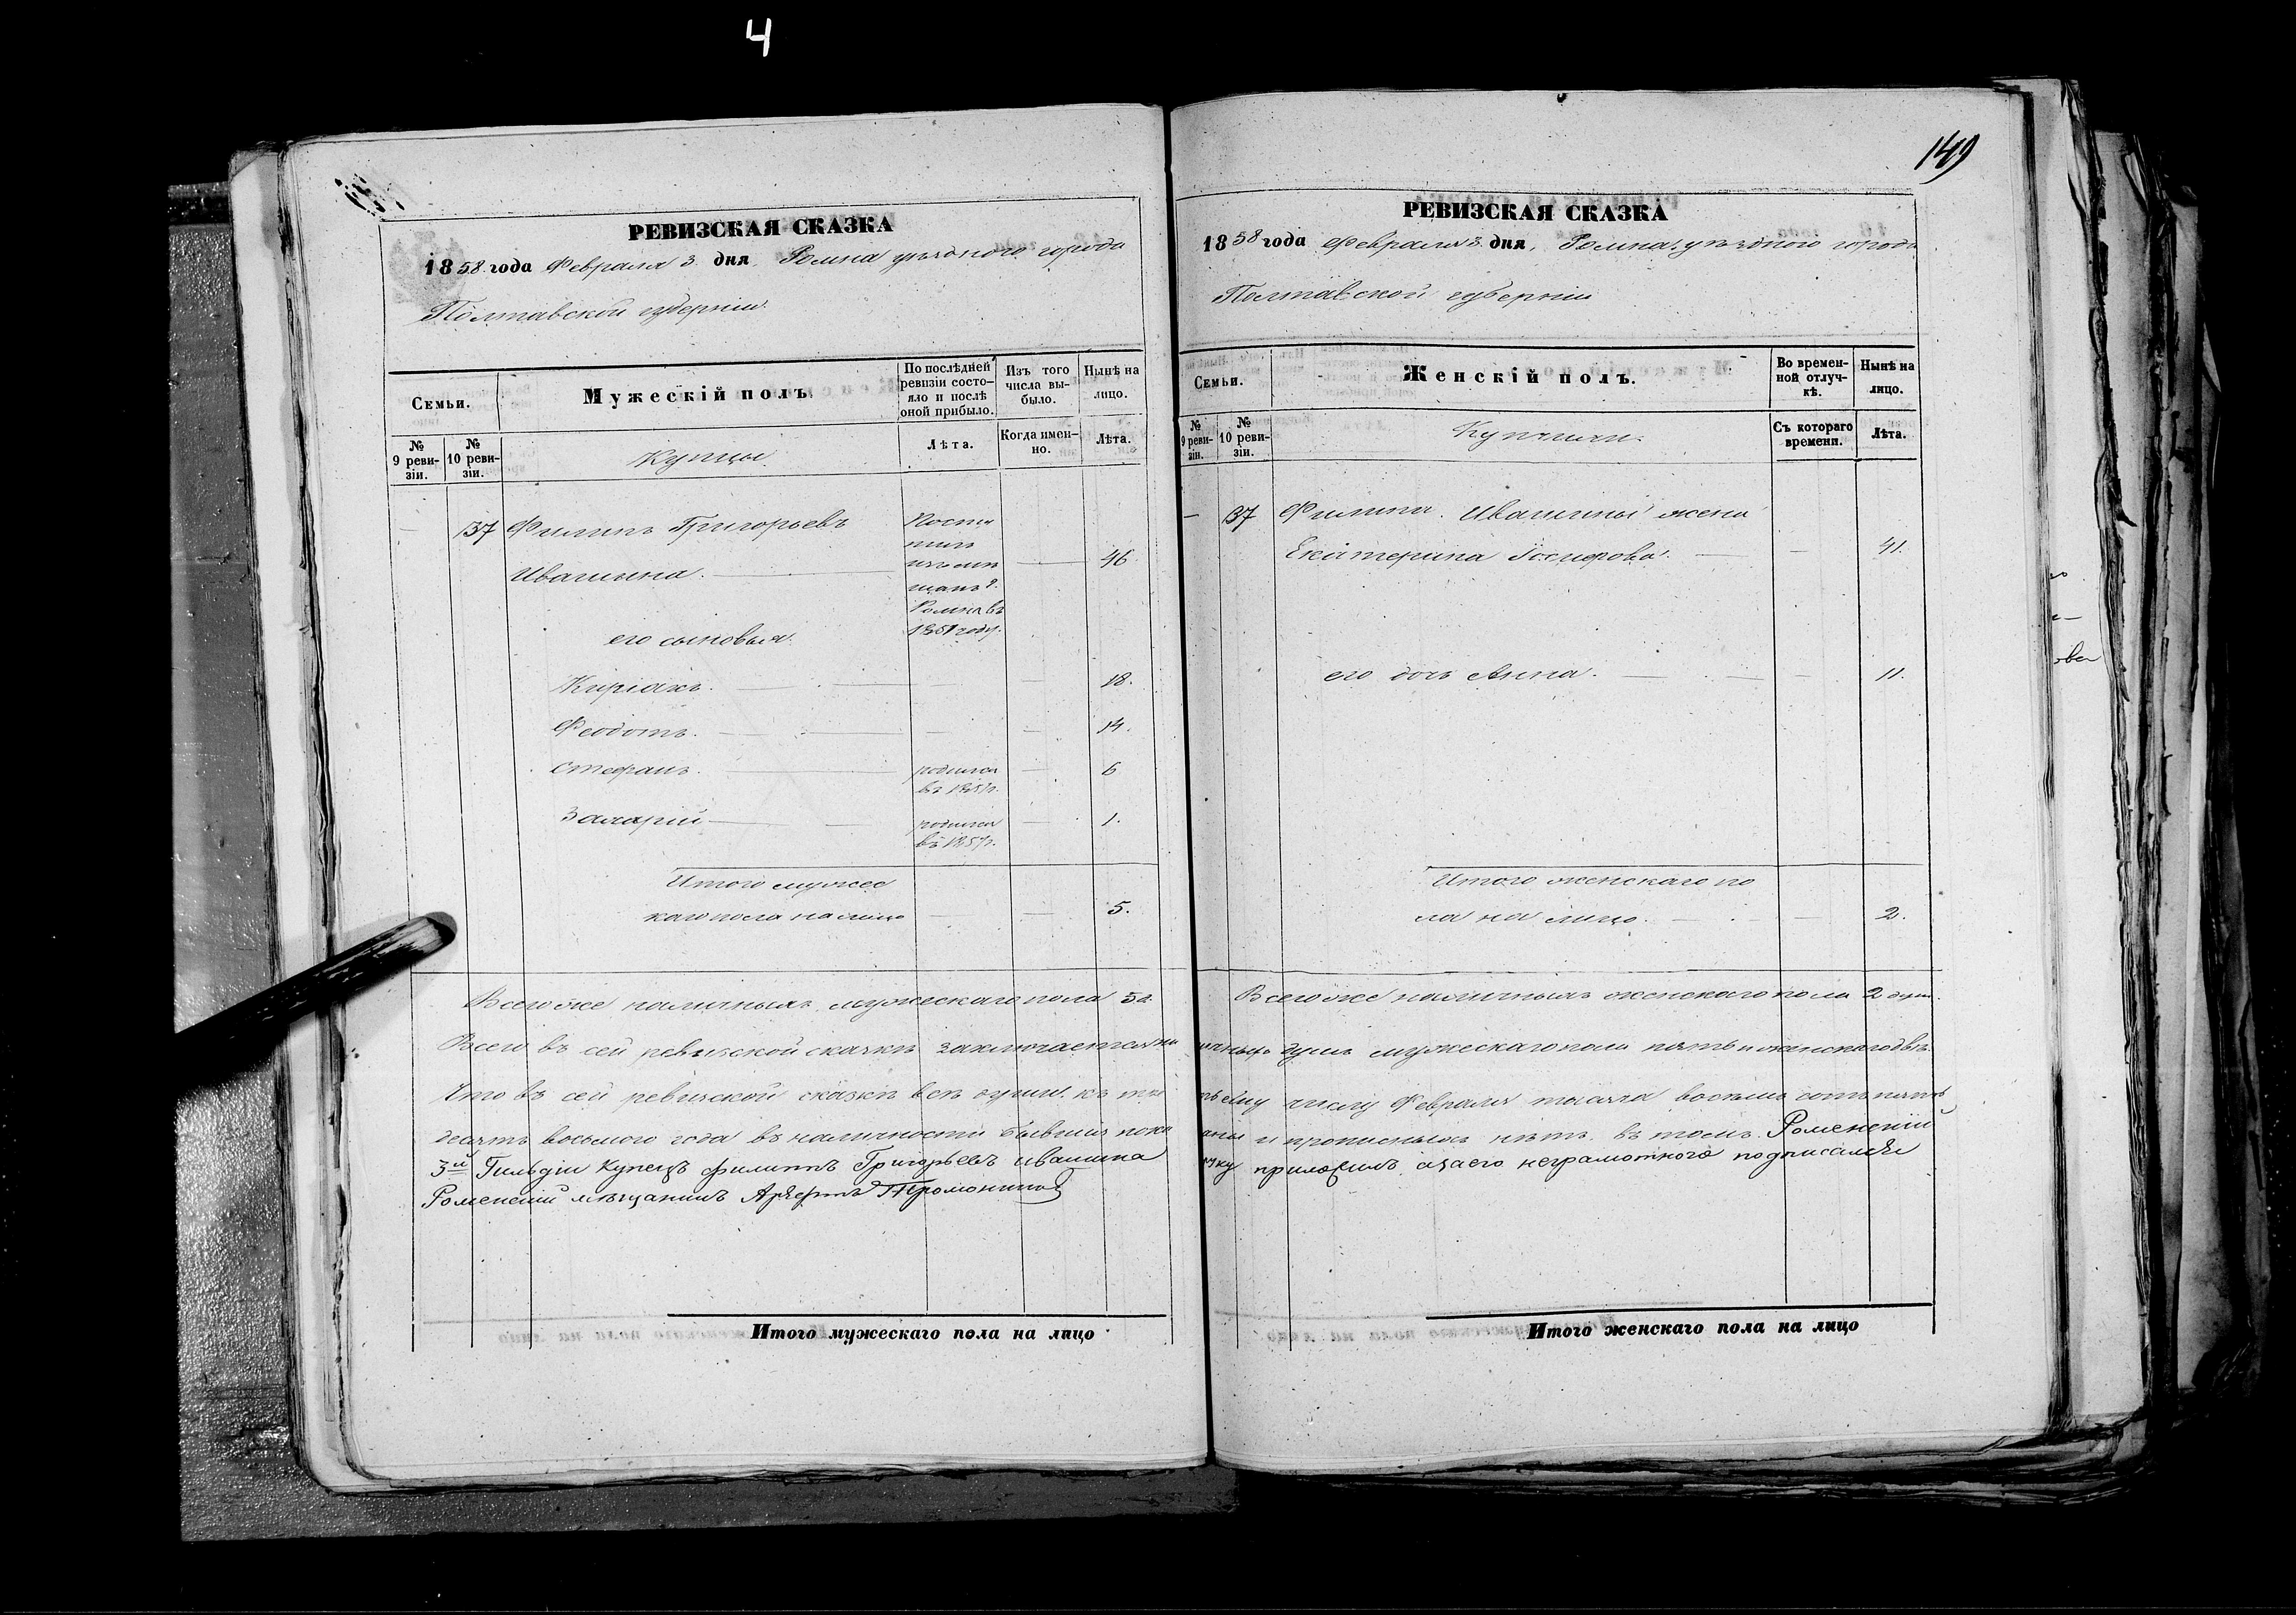 4
149
РЕВИЗСКАЯ СКАЗКА
1858 года Февраля 3 дня, Ромна уѣзднаго города
Полтавской губерніи.
Семьи.
Мужескій полъ
По послѣдней ревизіи состояло и послѣ оной прибыло.
Изъ того числа выбыло.
Нынѣ на лицо.
№ 9 ревизіи.
№ 10 ревизіи.
Купцы.
Лѣта.
Когда именно.
Лѣта.
— 137 Филипъ Григорьевъ
Ивашина. — — 46.
Ромна въ
1851 году.
его сыновья.
Киріакъ. — — 18.
Феодотъ. — — — 14.
Стефанъ. — родился въ 1851 г. — 6
— родился въ 1857 г. — 1.
Итого мужес
каго пола на лицо — — 5.
Всего же наличныхъ мужескаго пола 5 д.
Всего въ сей ревизской сказкѣ заключается
Что въ сей ревизской сказкѣ всѣ души, къ
десятъ восьмого года въ наличности бывшія пока
3й Гильдіи Купецъ Филиппъ Григорьевъ Ивашина
Роменскій мѣщанинъ
Итого мужескаго пола на лицо
РЕВИЗСКАЯ СКАЗКА
1858 года Февраля 3 дня, Ромна уѣзднаго города
Полтавской губерніи
Семьи.
Женскій полъ.
Во временной отлучкѣ.
Нынѣ на лицо.
№ 9 ревизіи.
№ 10 ревизіи.
Съ котораго времени.
Лѣта.
— 137 Филипа Ивашины жена
Екатерина Іосифова. — — 41.
его дочь Анна. — — — 11.
Итого женскаго по
ла на лицо. — — 2.
Всего же наличныхъ женскаго пола 2 души.
душъ мужескаго пола пять и женскаго двѣ.
числу Февраля тысяча восемь сотъ пять
заны и прописныхъ нѣтъ. въ томъ Роменскій
приложилъ, а за его неграмотного подписался
Итого женскаго пола на лицо